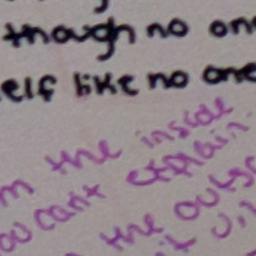 though no one
elf like no one
m the inside
ou cant explain.
the outs
it